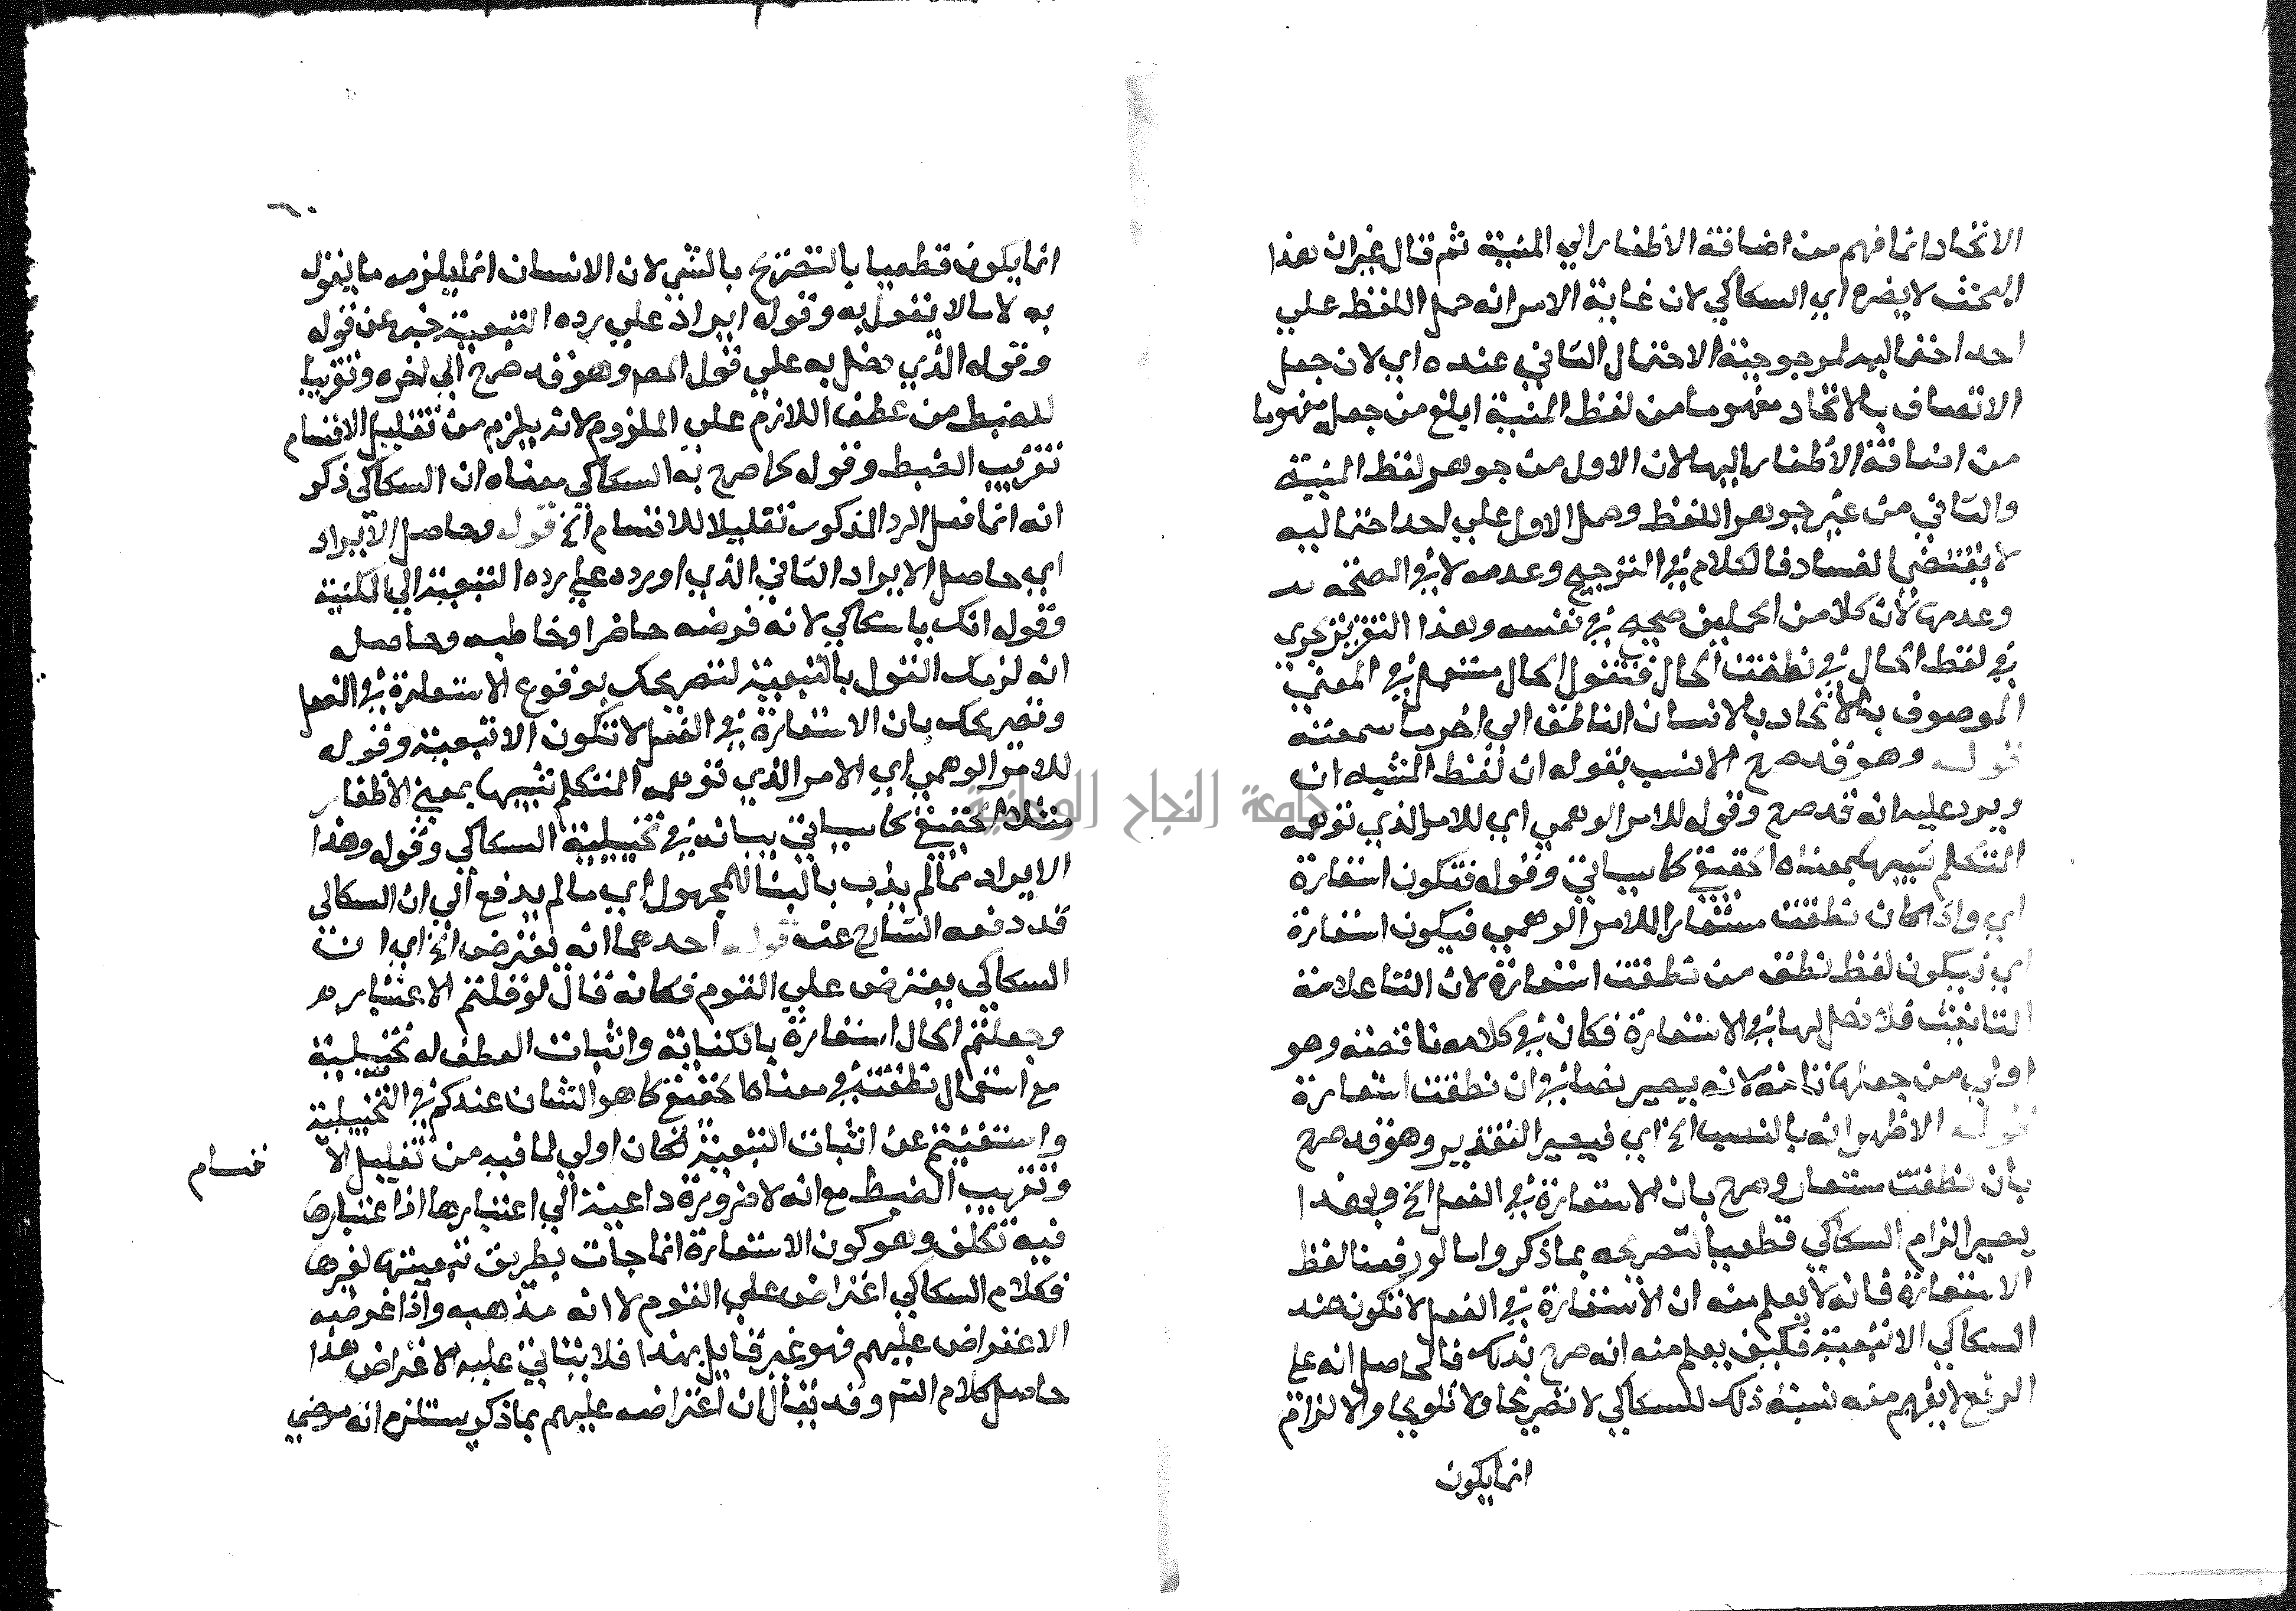 الاتحاد انما فهم من اضافة الاظفار الي المنية ثم قال غير ان هذا
البحث لا يضره اي السكاكي لان غاية الامر انه حمل اللفظ علي
احد احتماليه لمرجوحية الاحتمال الثاني عنده اي لان جعل
الاتصاف بالاتحاد مفهوما من لفظ المنية ابلغ من جعله مفهوما
من اضافة الاظفار اليها لان الاول من جوهر لفظ المنية
والثاني من غير جوهر اللفظ وحمل الاول علي احد احتماليه
لا يقتضي الفساد فالكلام في الترجيح وعدمه لا في الصحة
وعدمها لان كلا من الحملين صحيح في نفسه وهذا التقرير يجري
في لفظ الحال في نطقت الحال فتقول الحال مستعمل في المعني
الموصوف بالاتحاد بالانسان الناطق الي اخر ما سمعته
قوله وهو قد صرح الانسب بقوله ان لفظ المشبه ان
ويرد عليه انه قد صرح وقوله للامر الوهمي اي للامر الذي توهمه
المتكلم شبيها بمعناه الحقيقي كما سياتي وقوله فتكون استعارة
اي واذا كان نطقت مستعارا للامر الوهمي فيكون استعارة
اي فيكون لفظ نطق من نطقت استعارة لان التا علامة
التانيث فلا دخل لها في الاستعارة فكان في كلامه ناقصة وهو
اولي من جعلها تامة لانه يصير نصا في ان نطقت استعارة
قوله الاظهر انه بالنسب الخ اي فيصير التقدير وهو قد صرح
بان نطقت مستعار وصرح بان الاستعارة في الفعل الخ وبهذا
يصير الزام السكاكي قطعيا لتصريحه بما ذكر واما لو رفعنا لفظ
الاستعارة فانه لا يعلم منه ان الاستعارة في الفعل لا تكون عند
السكاكي الا تبعية فكيف يعلم منه انه صرح بذلك فالحاصل انه علي
الرفع لا يفهم منه نسبة ذلك للسكاكي لا تصريحا ولا تلويحا والالزام
انما يكون
٦٠
انما يكون قطعيا بالتصريح بالشي لان الانسان انما يلزمه ما يقول
به لا ما لا يقول به وقوله ايراد علي رده التبعية خبر عن قوله
وقوله الذي دخل به علي قول المص وهو قد صرح الي اخره وتقريبا
للضبط من عطف اللازم علي الملزوم لانه يلزم من تقليل الاقسام
تقريب الضبط وقوله كما صرح به السكاكي معناه ان السكاكي ذكر
انه انما فعل الرد المذكور تقليلا للاقسام الخ قوله وحاصل الايراد
اي حاصل الايراد الثاني الذي اورده علي رده التبعية الي المكنية
وقوله انك يا سكاكي لانه فرضه حاضرا وخاطبه وحاصله
انه لزمك القول بالتبعية لتصريحك بوقوع الاستعارة في الفعل
وتصريحك بان الاستعارة في الفعل لا تكون الا تبعية وقوله
للامر الوهمي اي الامر الذي توهمه المتكلم شبيها بمعني الاظفار
مثلا الحقيقي كما سياتي بيانه في تخييلية السكاكي وقوله وهذا
الايراد مما لم يذب بالبنا للمجهول اي مما لم يدفع الي ان السكاكي
قد دفعه الشارح عنه قوله احدهما انه نعترض الخ اي ان
السكاكي يعترض علي القوم فكانه قال لو قلتم الاعتبار
وجعلتم الحال استعارة بالكناية واثبات النطق له تخييلية
مع استعمال نطقت في معناها الحقيقي كما هو الشان عندكم في التخييلية
واستغنيتم عن اثبات التبعية لكان اولي لما فيه من تقليل الا
قسام
وتقريب الضبط مع انه لا ضرورة داعية الي اعتبارها اذ اعتبارها
فيه تكلف وهو كون الاستعارة انما جات بطريق تبعيتها لغيرها
فكلام السكاكي اعتراض علي القوم لا انه مذهبه واذا غرضه
الاعتراض عليهم فهو غير قايل بهذا فلا يتاتي عليه الاعتراض هذا
حاصل كلام الشم وقد يقال ان اعتراضه عليهم بما ذكر يستلزم انه مرضي
جامعة النجاح الوطنية